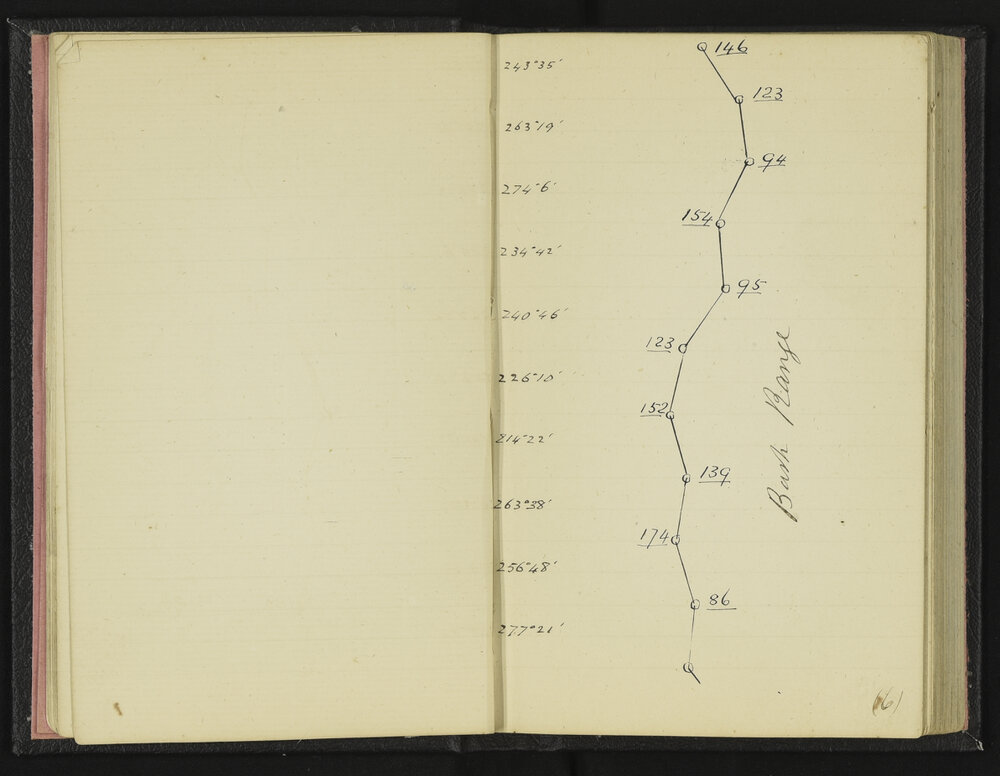 146
243°35'
123
263°19'
94
274°6'
154
234°42'
95
240°46'
123
226°10'
152
214°22'
139
263°38'
174
256°48'
86
277°21'
Range
(6)